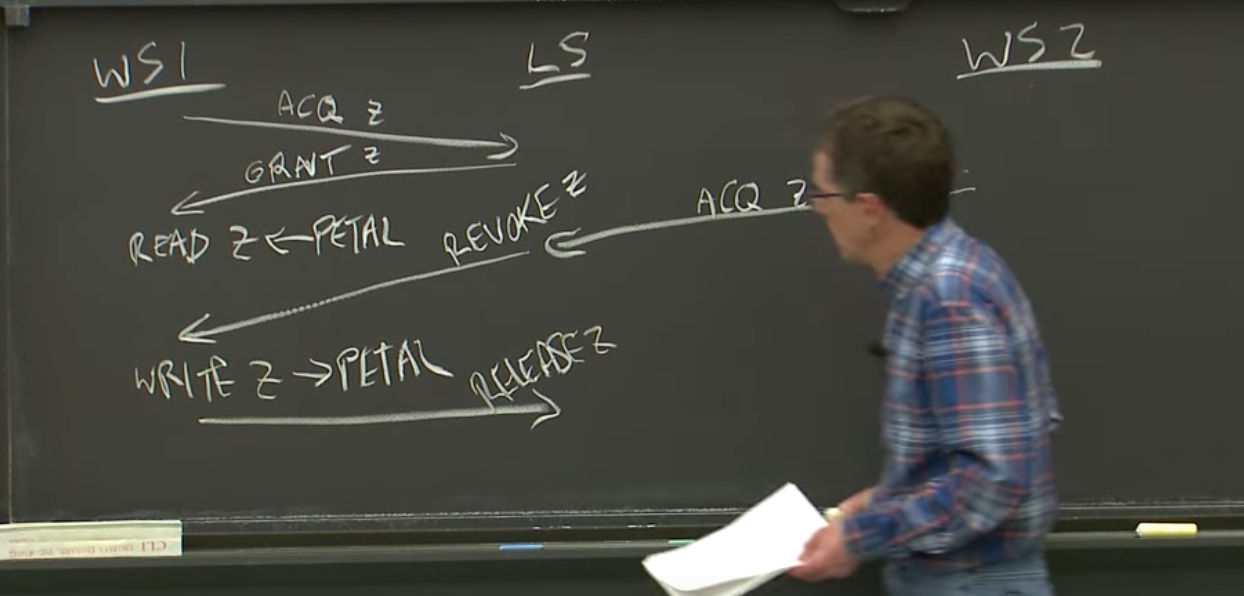 WS1 LS WS2
ACQ Z
GRANT Z
ACQ Z
READ Z ← PETAL
REVOKE Z
WRITE Z → PETAL
RELEASE Z